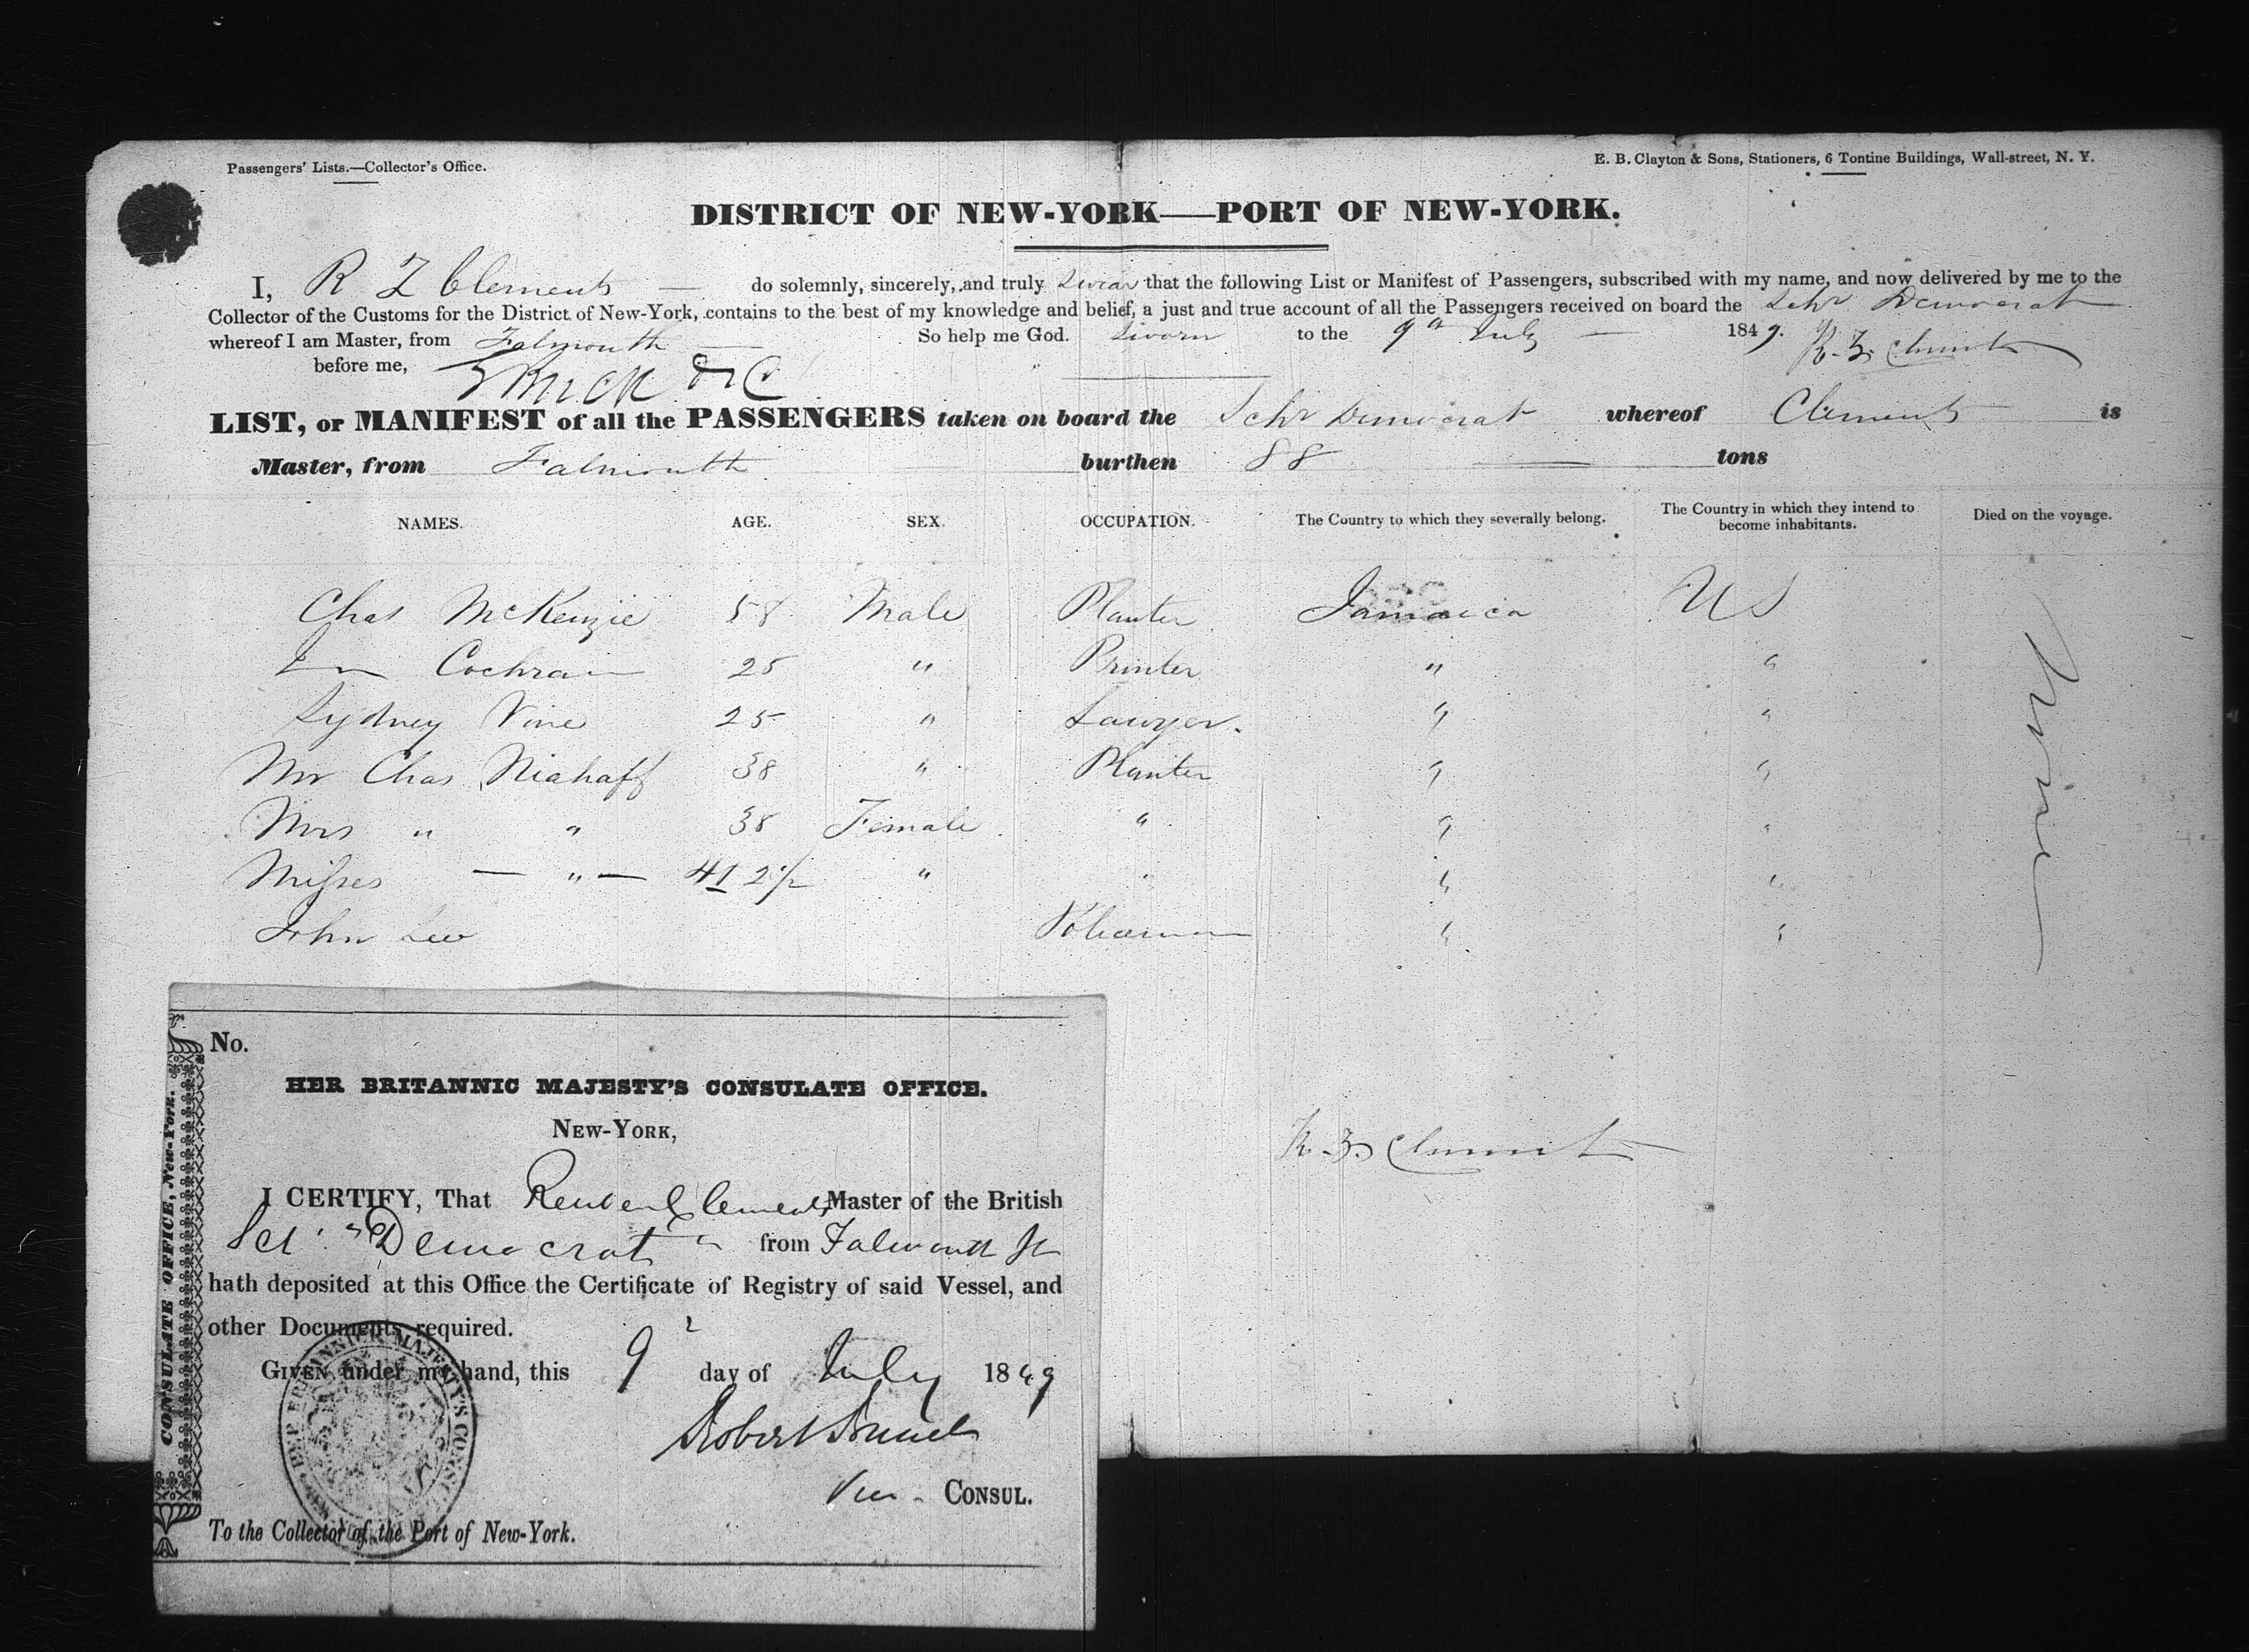 Passengers' Lists.—Collector's Office.
E. B. Clayton & Sons, Stationers, 6 Tontine Buildings, Wall-street, N. Y.
DISTRICT OF NEW-YORK—PORT OF NEW-YORK.
I, R Z Clements do solemnly, sincerely, and truly swear that the following List or Manifest of Passengers, subscribed with my name, and now delivered by me to the
Collector of the Customs for the District of New-York, contains to the best of my knowledge and belief, a just and true account of all the Passengers received on board the Schr Democrat
whereof I am Master, from Falmouth So help me God. Sworn to the 9th July 1849. R. Z. Clements
before me,
LIST, or MANIFEST of all the PASSENGERS taken on board the Schr Democrat whereof Clements is
Master, from Falmouth burthen 88 tons
NAMES. AGE. SEX. OCCUPATION. The Country to which they severally belong. The Country in which they intend to become inhabitants. Died on the voyage.
Chas McKenzie 58 Male Planter Jamaica US
Cochran 25 " Printer " "
Sydney Vine 25 " Lawyer. " "
Mr Chas Niahaff 38 " Planter " "
Mrs " " 38 Female " " "
Misses — " — 4 1 2/2 " " " "
John Lee Policeman " "
None
R. Z. Clements
CONSULATE OFFICE, New-York.
No.
HER BRITANNIC MAJESTY'S CONSULATE OFFICE.
NEW-YORK,
I CERTIFY, That Reuben Clements, Master of the British
Sch. "Democrat" from Falmouth Ja
hath deposited at this Office the Certificate of Registry of said Vessel, and
other Documents required.
GIVEN under my hand, this 9 day of July 1849
Vice CONSUL.
To the Collector of the Port of New-York.